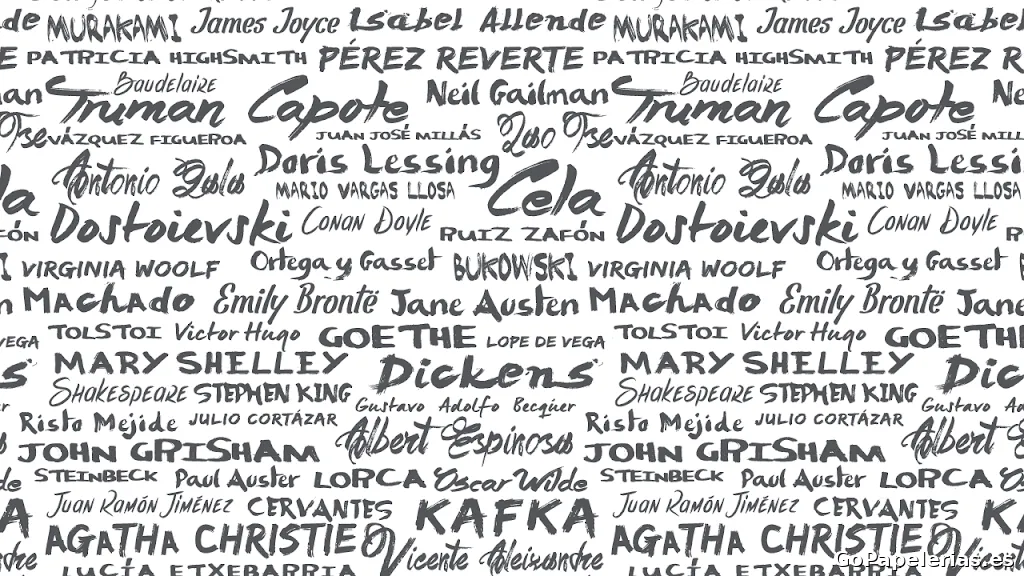 de MURAKAMI James Joyce Isabel Allende MURAKAMI James Joyce Isabel
E PATRICIA HIGHSMITH PÉREZ REVERTE PATRICIA HIGHSMITH PÉREZ R
Baudelaire Baudelaire
an Truman Capote Neil Gailman Truman Capote Ne
Tse VÁZQUEZ FIGUEROA JUAN JOSÉ MILLÁS Lao Tse VÁZQUEZ FIGUEROA JUAN JOSÉ MILL
Antonio Gala Doris Lessing Antonio Gala Doris Lessi
la MARIO VARGAS LLOSA Cela MARIO VARGAS LLOSA
FÓN Dostoievski CONAN DOYLE RUIZ ZAFÓN Dostoievski CONAN DOYLE R
I VIRGINIA WOOLF Ortega y Gasset BUKOWSKI VIRGINIA WOOLF Ortega y Gasset
n MACHADO Emily Brontë Jane Austen MACHADO Emily Brontë Jane
VEGA TOLSTOI Victor Hugo GOETHE LOPE DE VEGA TOLSTOI Victor Hugo GOETH
s MARY SHELLEY Dickens MARY SHELLEY Dic
SHAKESPEARE STEPHEN KING Gustavo Adolfo Becqüer SHAKESPEARE STEPHEN KING Gustavo Ad
Risto Mejide JULIO CORTÁZAR Albert Espinosa Risto Mejide JULIO CORTÁZAR Albert
JOHN GRISHAM JOHN GRISHAM
de STEINBECK Paul Auster LORCA Oscar Wilde STEINBECK Paul Auster LORCA Os
A JUAN RAMÓN JIMÉNEZ CERVANTES KAFKA JUAN RAMÓN JIMÉNEZ CERVANTES K
AGATHA CHRISTIE Vicente Aleixandre AGATHA CHRISTIE
LUCÍA ETXEBARRIA LUCÍA ETXEBARRIA
GoPapelerias.es